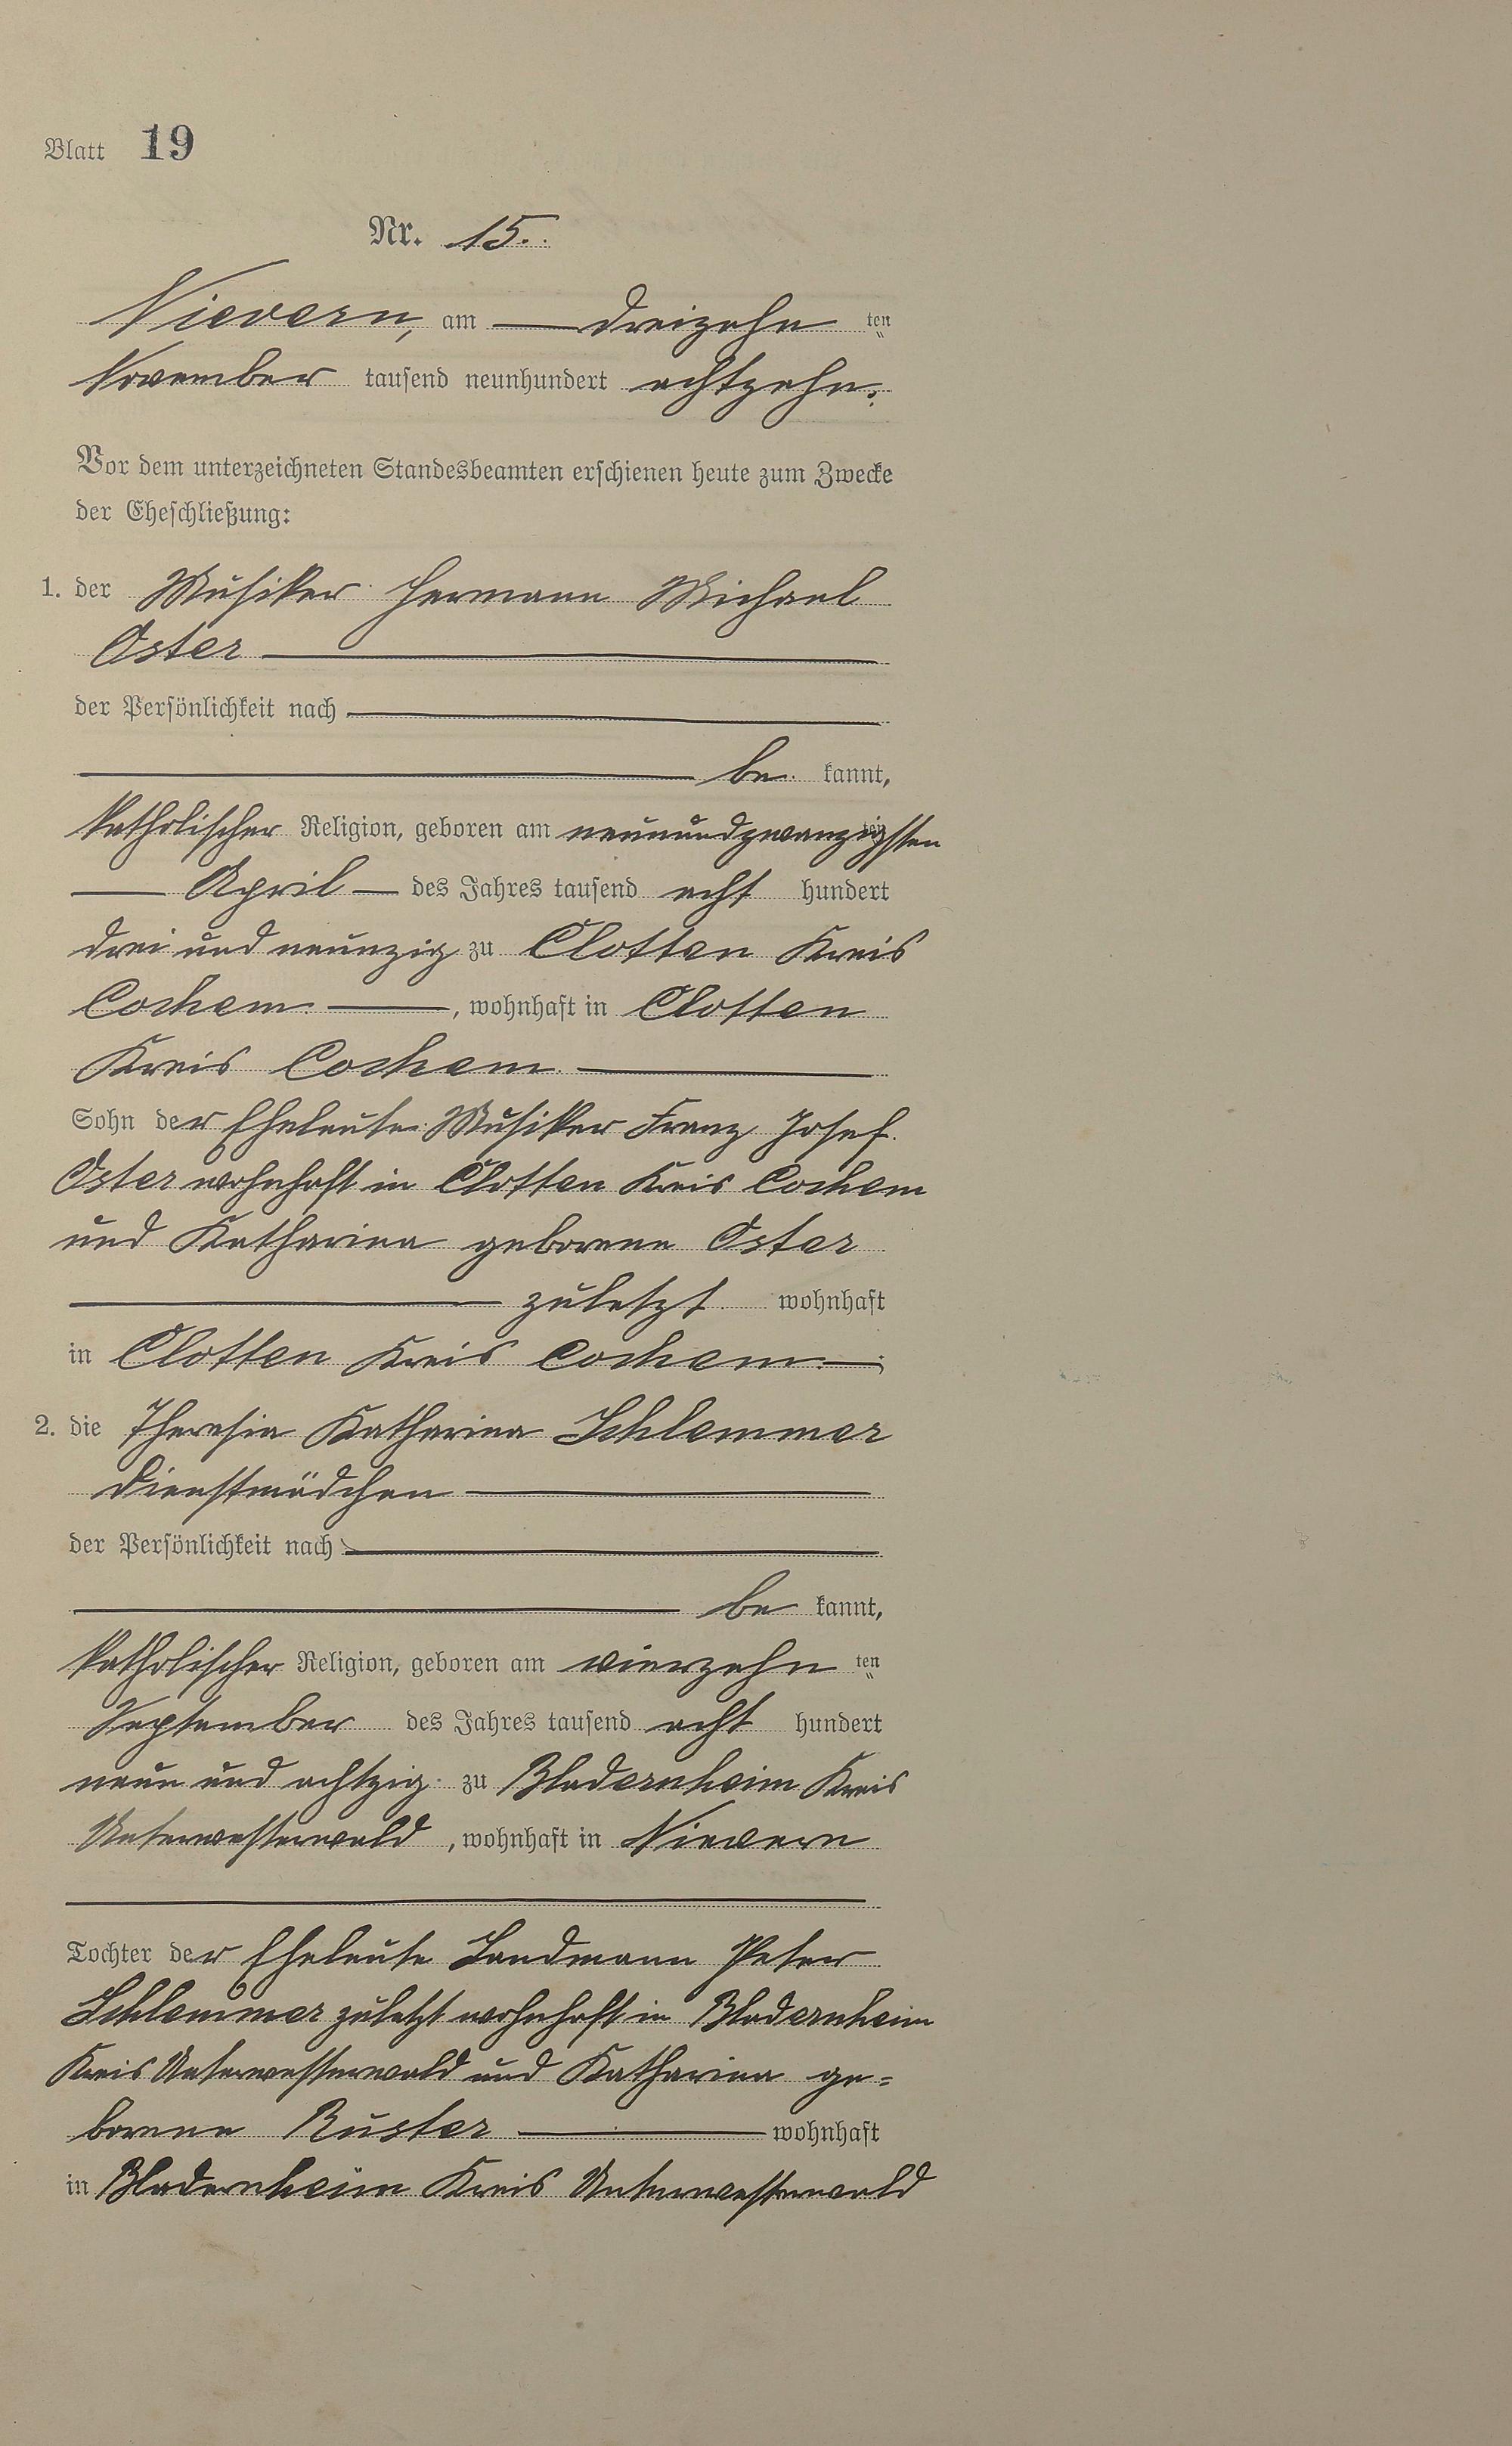 Blatt 19
Nr. 15.
Nievern, am — dreizehn ten
November tausend neunhundert achtzehn.
Vor dem unterzeichneten Standesbeamten erschienen heute zum Zwecke
der Eheschließung:
1. der Musiker Hermann Michael
Oster —
der Persönlichkeit nach —
— be kannt,
katholischer Religion, geboren am neunundzwanzigsten
— April — des Jahres tausend acht hundert
drei und neunzig zu Clotten Kreis
Cochem —, wohnhaft in Clotten
Kreis Cochem. —
Sohn der Eheleute Musiker Franz Josef
Oster wohnhaft in Clotten Kreis Cochem
und Katharina geborene Oster
— zuletzt wohnhaft
in Clotten Kreis Cochem —;
2. die Theresia Katharina Schlemmer
Dienstmädchen —
der Persönlichkeit nach —
— be kannt,
katholischer Religion, geboren am vierzehn ten
September des Jahres tausend acht hundert
neun und achtzig zu Bladernheim Kreis
Unterwesterwald, wohnhaft in Nievern
—
Tochter der Eheleute Landmann Peter
Schlemmer zuletzt wohnhaft in Bladernheim
Kreis Unterwesterwald und Katharina ge=
borene Ruster — wohnhaft
in Bladernheim Kreis Unterwesterwald